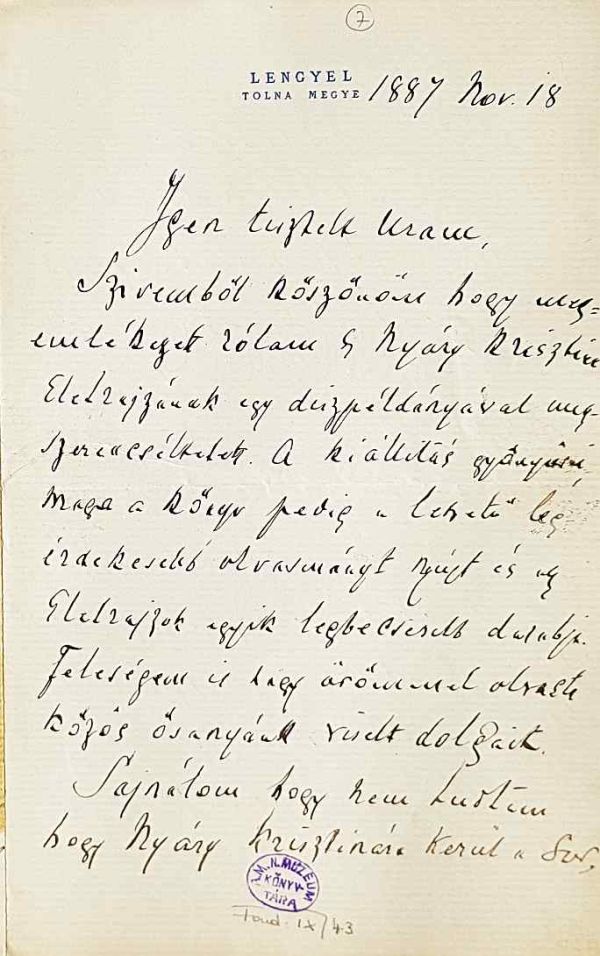 7
LENGYEL
TOLNA MEGYE 1887 Nov. 18
Igen tisztelt Uram,
Szivemből köszönöm hogy meg-
emlékezett rólam és Nyáry Krisztina
Eletrajzának egy diszpéldányával meg-
szerencséltetett. A kiállitás gyönyörű,
maga a könyv pedig a lehető leg
érdekesebb olvasmányt nyújt és az
Eletrajzok egyik legbecsesebb darabja.
Feleségem is nagy örömmel olvasta
közös ősanyánk viselt dolgait.
Sajnálom hogy nem tudtam
hogy Nyáry Krisztinára kerül a sor,
M. N. MÚZEUM
KÖNYV-
TÁRA
Fond. IX/43